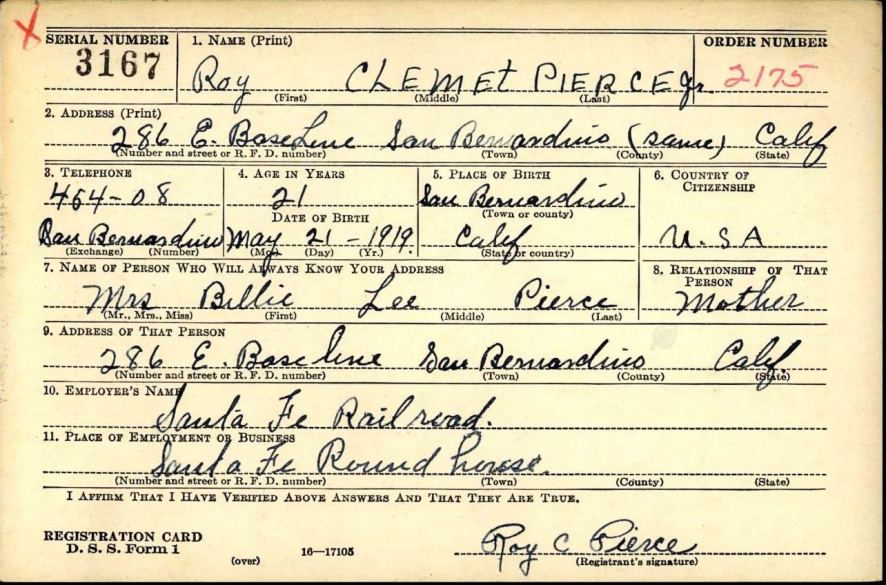 X
SERIAL NUMBER 1. NAME (Print) ORDER NUMBER
3167 Roy CLEMET PIERCE Jr. 2175
(First) (Middle) (Last)
2. ADDRESS (Print)
286 E. BaseLine San Bernardino (same) Calif
(Number and street or R. F. D. number) (Town) (County) (State)
3. TELEPHONE 4. AGE IN YEARS 5. PLACE OF BIRTH 6. COUNTRY OF CITIZENSHIP
464-08 21 San Bernardino
DATE OF BIRTH (Town or county)
San Bernardino May 21-1919 Calif U.SA
(Exchange) (Number) (Mo.) (Day) (Yr.) (State or country)
7. NAME OF PERSON WHO WILL ALWAYS KNOW YOUR ADDRESS 8. RELATIONSHIP OF THAT PERSON
Mrs Billie Lee Pierce Mother
(Mr., Mrs., Miss) (First) (Middle) (Last)
9. ADDRESS OF THAT PERSON
286 E. Base line San Bernardino Calif.
(Number and street or R. F. D. number) (Town) (County) (State)
10. EMPLOYER'S NAME
Santa Fe Railroad.
11. PLACE OF EMPLOYMENT OR BUSINESS
Santa Fe Round house.
(Number and street or R. F. D. number) (Town) (County) (State)
I AFFIRM THAT I HAVE VERIFIED ABOVE ANSWERS AND THAT THEY ARE TRUE.
REGISTRATION CARD
D. S. S. Form 1 (over) 16—17105 Roy C Pierce
(Registrant's signature)